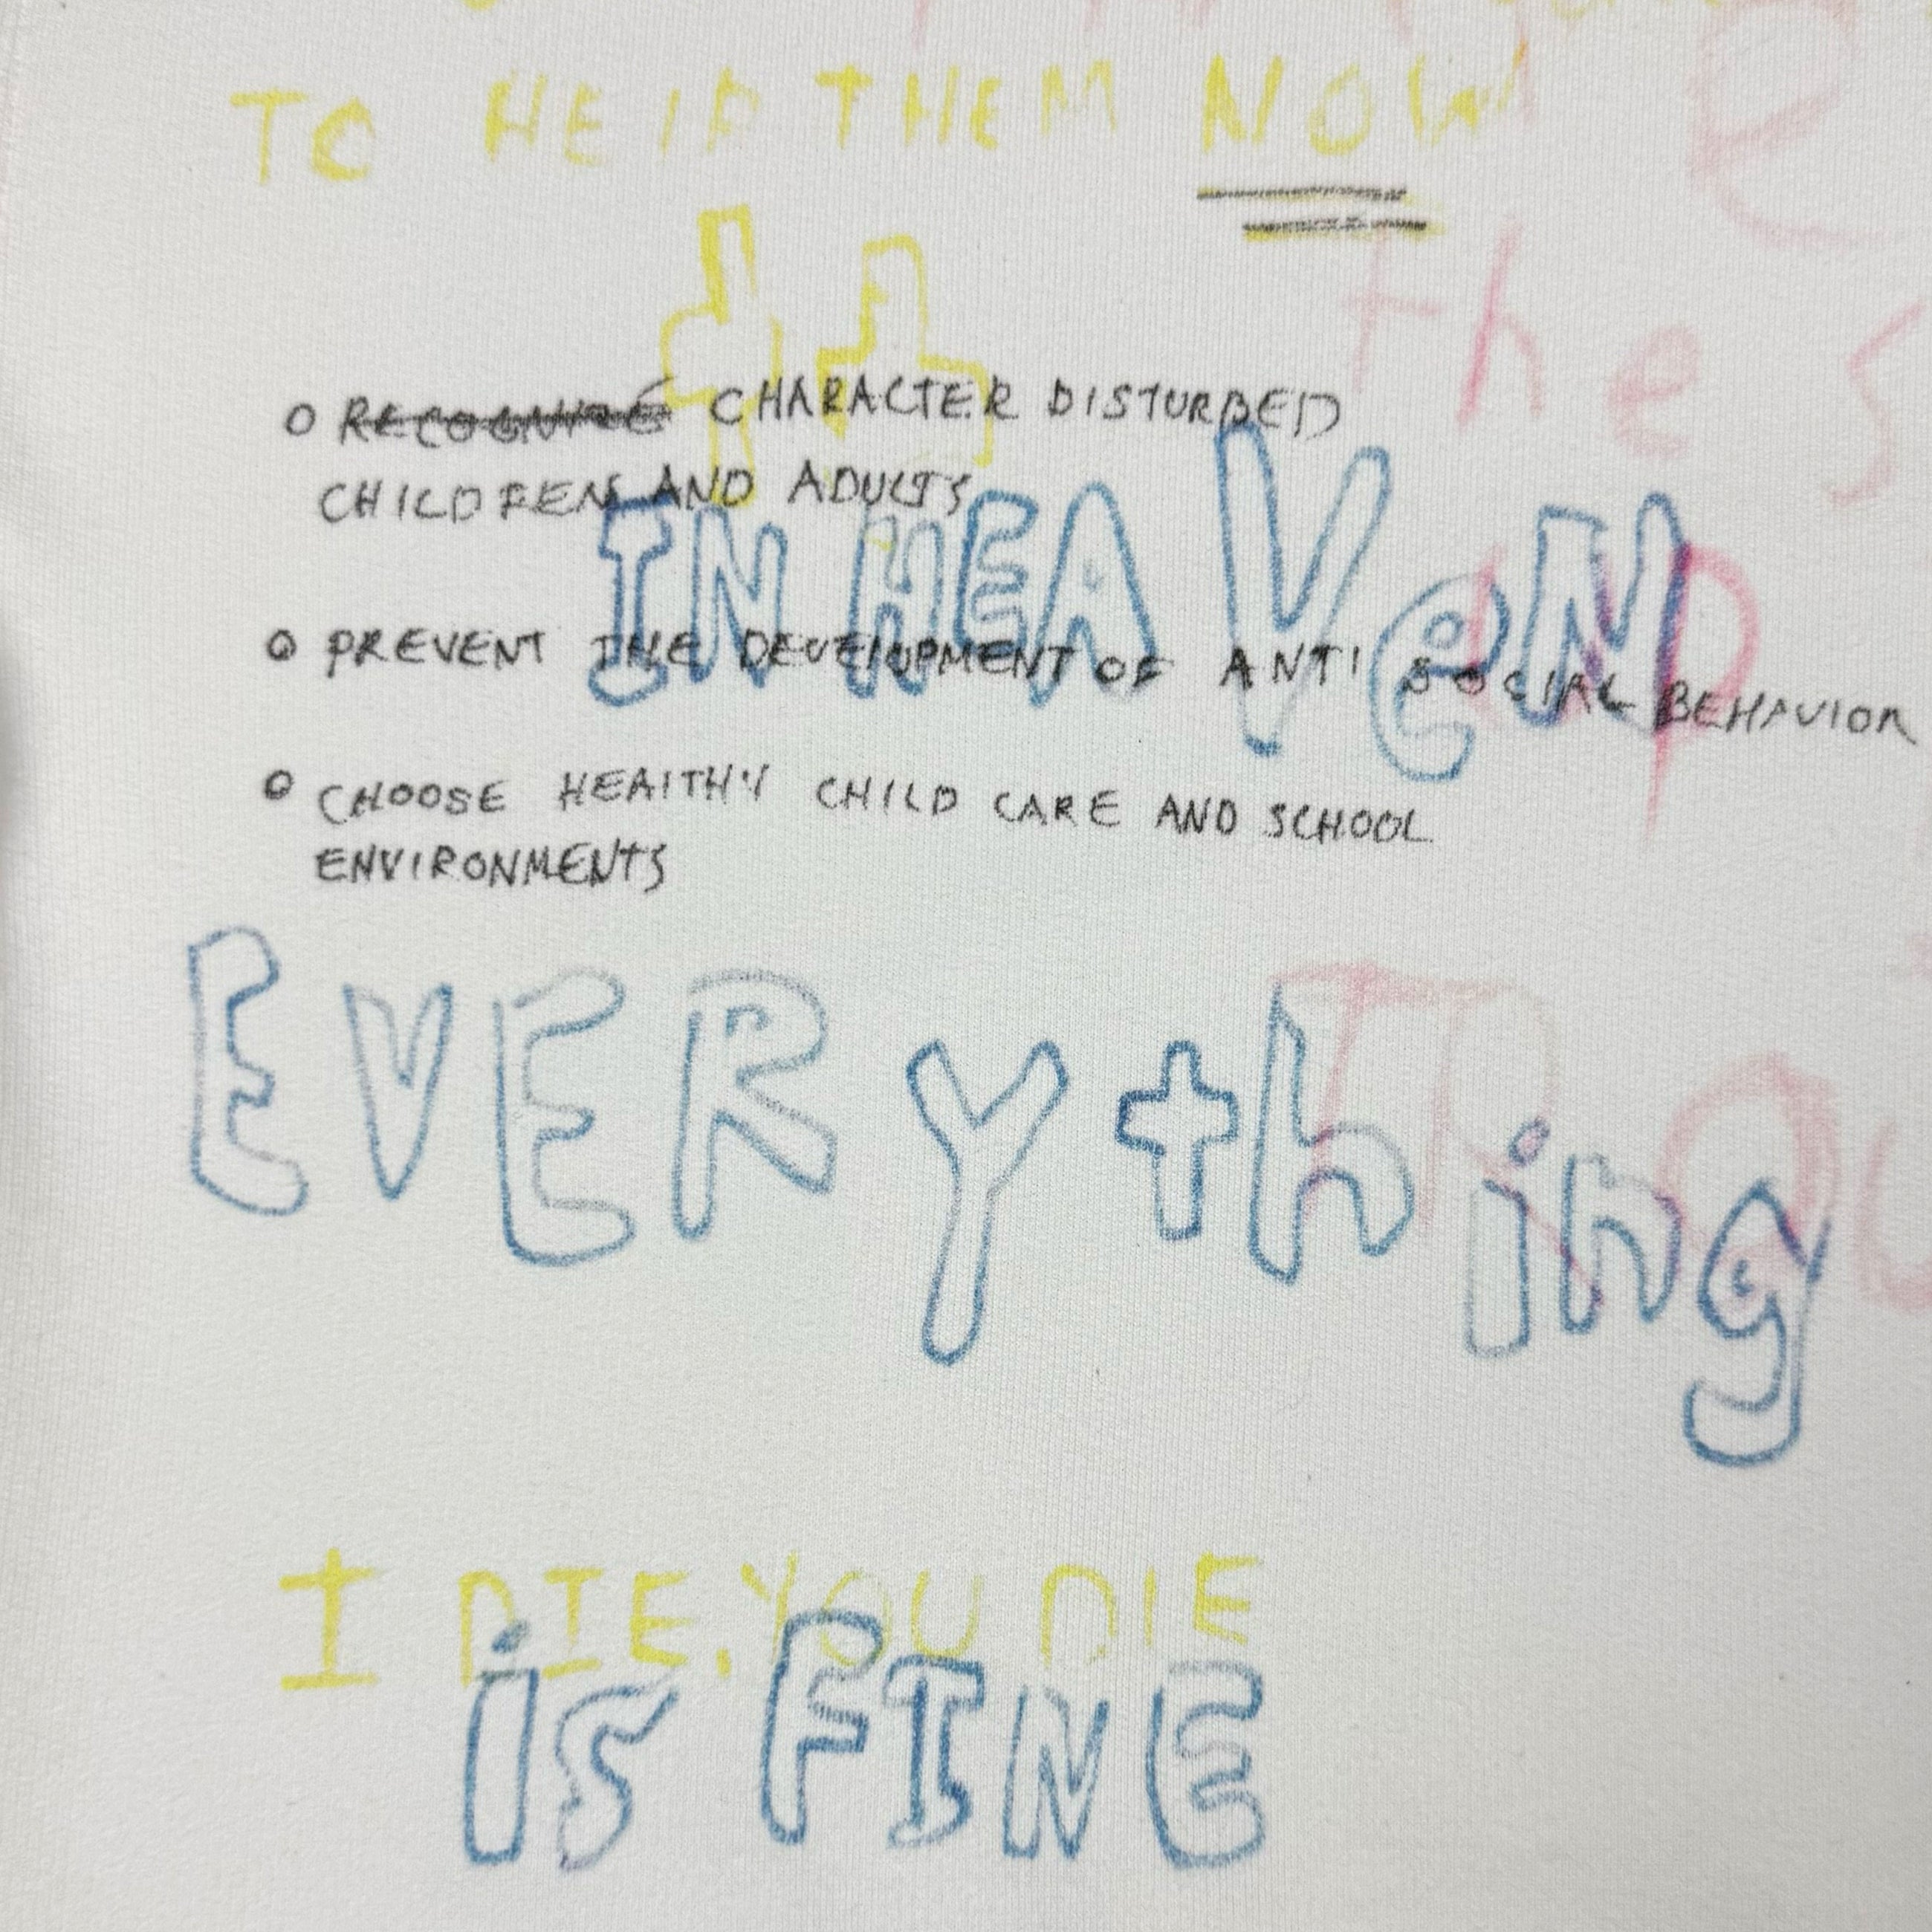 TO HElP THEM NOW
RECOGNIZE CHARACTER DISTURBED
CHILDREN AND ADULTS
IN HEAVeN
PREVENT THE DEVElOPMENT OF ANTI SOCIAL BEHAVIOR
CHOOSE HEAlTHY CHILD CARE AND SCHOOL
ENVIRONMENTS
EVERything
I DIE. YOU DIE
is FINE
the
up